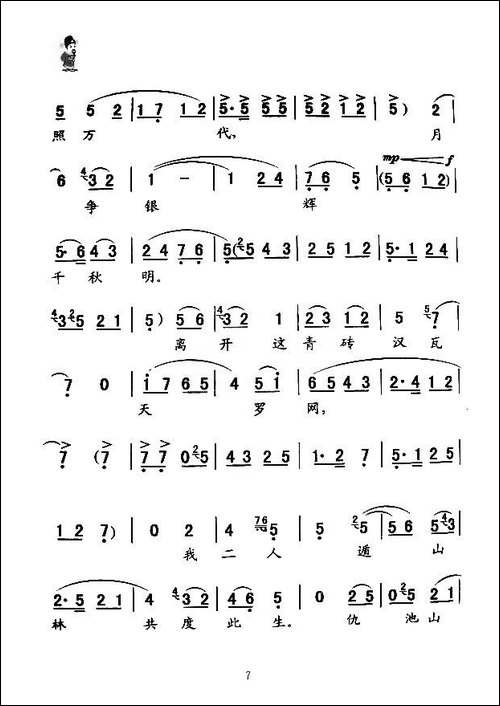 5 5 2 | 1 7 1 2 | 5·5 5 5 | 5 2 1 2 | 5) 2
照万 代, 月
mp f
6 4 3 2 | 1 - | 1 2 4 | 7 6 5 | (5 6 1 2
争 银 辉
5·6 4 3 | 2 4 7 6 | 5(2 5 4 3 | 2 5 1 2 | 5·1 2 4
千秋 明。
4 3 2 5 2 1 | 5) 5 6 | 4 3 2 1 | 2 3 1 2 | 5 5 7
离开这青砖汉瓦
7 0 | i 7 6 5 | 4 5 i | 6 5 4 3 | 2·4 1 2
天 罗 网,
7 (7 | 7 7 0 2 5 | 4 3 2 5 | 1·2 7 | 5·1 2 5
1 2 7) | 0 2 | 4 7 6 5 | 5 2 5 | 5 6 5 4 3
我二人 遁 山
2·5 2 1 | 4 4 3 2 | 4 6 5 | 0 2 5 | 0 2 5 2 1
林 共度此生。仇 池山
7